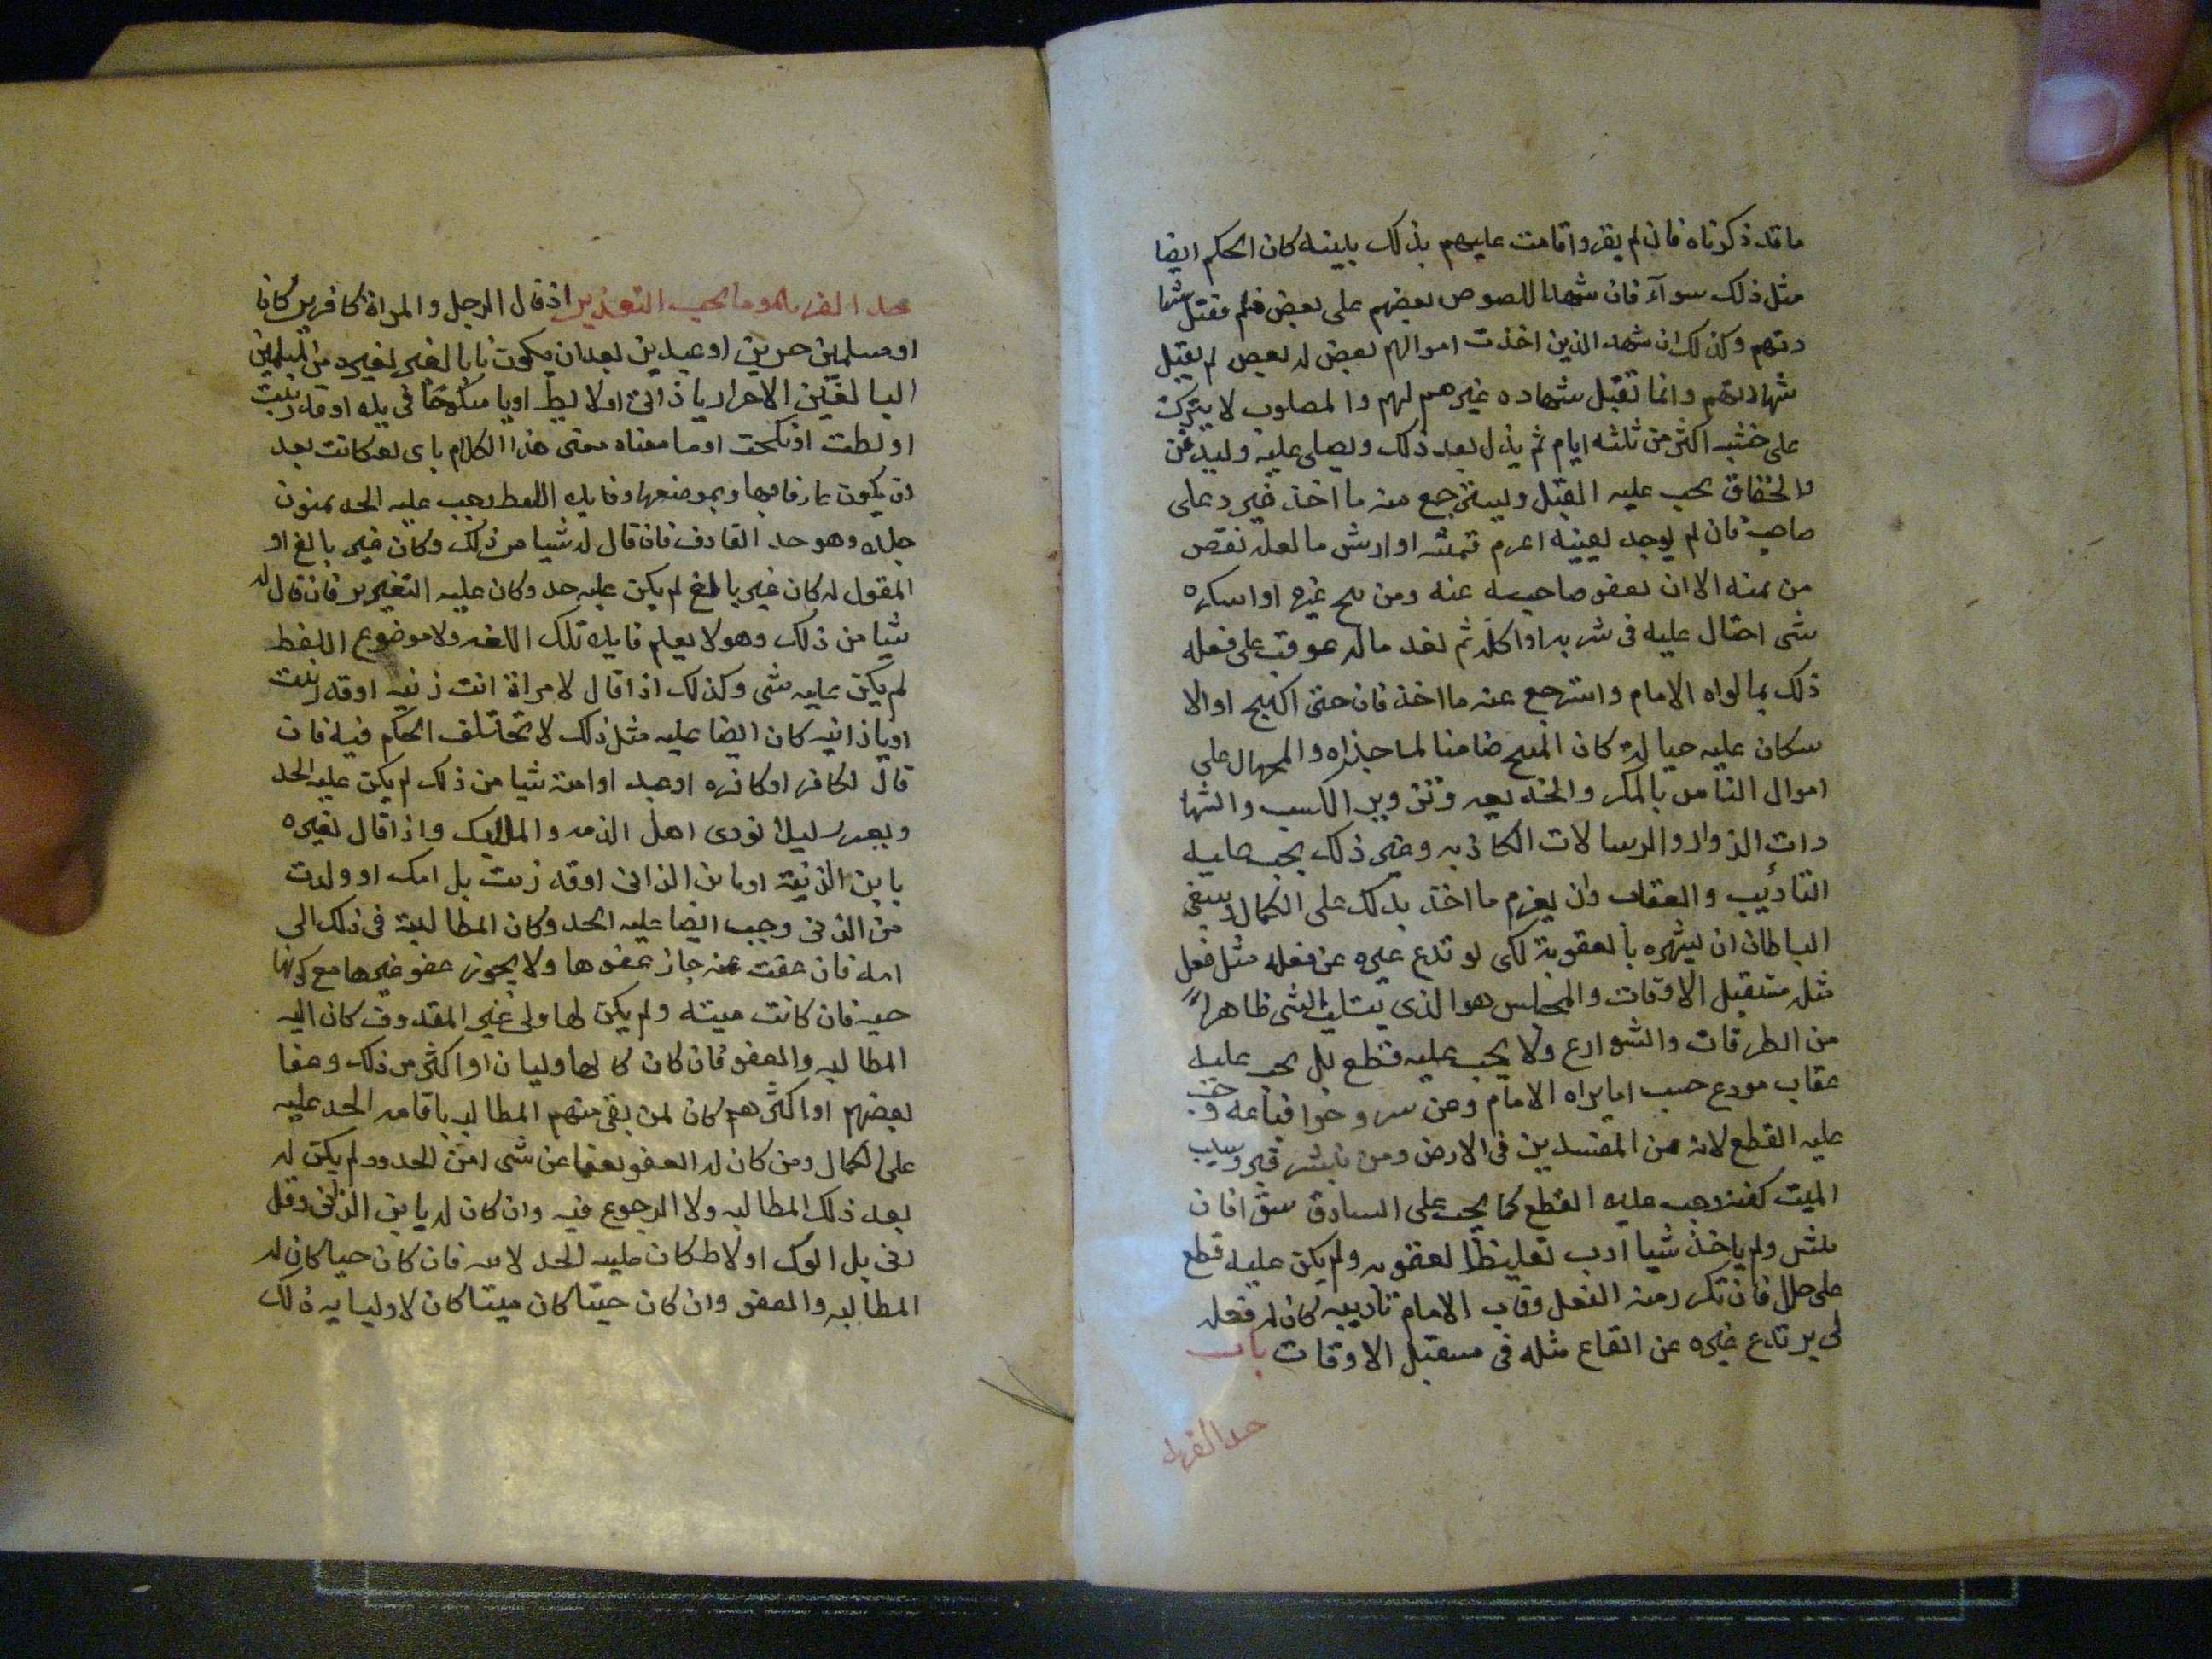 ما قد ذكرناه فان لم يقروا قامت عليهم بذلك بينه كان الحكم ايضا
مثل ذلك سوآء فان شهد اللصوص بعضهم على بعض فلم تقتل شها
دتهم وكذلك ان شهد الذين اخذت اموالهم بعض لبعض لم يقبل
شهادتهم وانما تقبل شهاده غيرهم لهم والمصلوب لا يترك
على خشبه اكثر من ثلثه ايام ثم ينزل بعد ذلك ويصلى عليه وليدفن
والخناق يجب عليه القتل ويسترجع منه ما اخذ فيرد على
صاحبه فان لم يوجد بعينه اغرم قيمته او ارش ما لعله نقص
من ثمنه الا ان يعفو صاحبه عنه ومن بنج غيره او اسكره
شى احتال عليه فى شربه او اكله ثم اخذ ماله عوقب على فعله
ذلك بما يراه الامام واسترجع عنه ما اخذ فان جنى البنج او الا
سكار عليه جنايه كان المبنج ضامنا لما جناه والمحتال على
اموال الناس بالمكر والخديعه وتزوير الكتب والشها
دات الزور والرسالات الكاذبه وغير ذلك يجب عليه
التأديب والعقاب وان يغرم ما اخذ بذلك على الكمال وينبغى
السلطان ان يشهره بالعقوبة لكى يرتدع غيره عن فعله مثل فعل
مثله مستقبل الاوقات والمختلس هو الذى يستلب الشى ظاهرا
من الطرقات والشوارع ولا يجب عليه قطع بل يجب عليه
عقاب مردع حسب ما يراه الامام ومن سرق حرا فباعه وجب
عليه القطع لانه من المفسدين فى الارض ومن نبش قبر وسلب
الميت كفنه وجب عليه القطع كما يجب على السارق سوآ فان
نبش ولم ياخذ شيا ادب تغليظا لعقوبه ولم يكن عليه قطع
على حال فان تكرر منه الفعل وفات الامام تاديبه كان له قتله
لكى يرتدع غيره عن ايقاع مثله فى مستقبل الاوقات باب
حد الفريه
حد الفريه وما يجب التعزير اذ قال الرجل والمراة كافرين كانا
او مسلمين حرين او عبدين بعد ان يكونا بالغين لغيره من المسلمين
البالغين الاحرار يا زانى او لا يط او يا منكوحا فى دبره او قد زنيت
او لطت او نكحت او ما معناه معنى هذا الكلام باى لغه كانت بعد
ان يكون عارفا بها وبموضعها وفايده اللفظ وجب عليه الحد ثمنون
جلده وهو حد القاذف فان قال له شيا من ذلك وكان غير بالغ او
المقول له كان غير بالغ لم يكن عليه حد وكان عليه التعزير فان قال له
شيا من ذلك وهو لا يعلم فايده تلك اللغه ولا موضوع اللفظ
لم يكن عليه شى وكذلك اذا قال لامراة انت زنيه او قد زنيت
او يا زانيه كان ايضا عليه مثل ذلك لا تختلف الحكم فيه فان
قال لكافر او كافره او عبد او امة شيا من ذلك لم يكن عليه الحد
ويعزر ليلا نوذى اهل الذمه والمماليك واذا قال لغيره
يا بن الزنية او يا بن الزانى او قد زنت بك امك او ولدت
من الزنى وجب ايضا عليه الحد وكان المطالبة فى ذلك الى
امه فان عفت عنه جاز عفوها ولا يجوز عفو غيرها مع كونها
حيه فان كانت ميته ولم يكن لها ولى غير المقذوف كان اليه
المطالبه والعفو فان كان كا لها وليان او اكثر من ذلك وعفا
بعضهم او اكثرهم كان لمن بقى منهم المطالبه باقامه الحد عليه
على الكمال ومن كان له العفو فعفا عن شى من الحدود لم يكن له
بعد ذلك المطالبه ولا الرجوع فيه وان كان له يا بن الزنى وقد
زنى بك ابوك او لاط كان عليه الحد لابيه فان كان حيا كان له
المطالبه والعفو وان كان حيتا كان ميتا كان لاوليايه ذلك